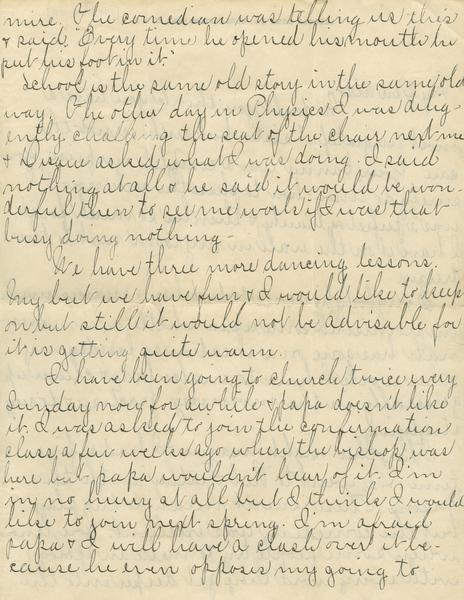 mire. The comedian was telling us this
& said, "Every time he opened his mouth he
put his foot in it."
School is the same old story in the same old
way. The other day in Physics I was dilig-
ently chalking the seat of the chair next me
& asked what I was doing. I said
nothing at all & he said it would be won-
derful then to see me work if I was that
busy doing nothing.
We have three more dancing lessons.
My but we have fun & I would like to keep
on but still it would not be advisable for
it is getting quite warm.
I have been going to church twice every
Sunday now for awhile & papa doesn't like
it. I was asked to join the confirmation
class a few weeks ago when the bishop was
here but papa wouldn't hear of it. I'm
in no hurry at all but I think I would
like to join next spring. I'm afraid
papa & I will have a clash over it be-
cause he even opposes my going to